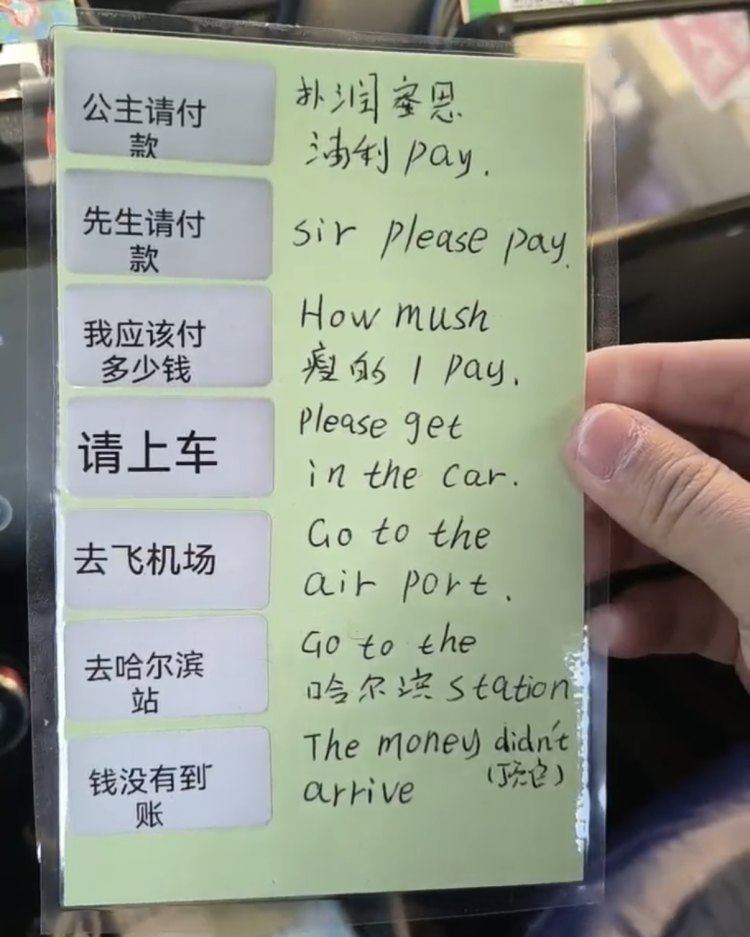 公主请付
款
扑润
利 pay.
先生请付
款
sir please pay.
我应该付
多少钱
How mush
瘦的 I pay.
请上车
Please get
in the car.
去飞机场
Go to the
air port.
去哈尔滨
站
Go to the
哈尔滨 station
钱没有到
账
The money didn't
arrive